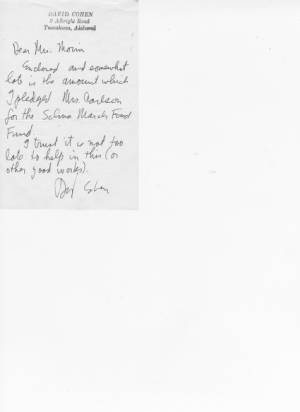 DAVID COHEN
Tuscaloosa, Alabama
Dear Mr. Morin
Enclosed and somewhat
late is the amount which
I pledged Mrs. Carlson
for the Selma March Food
Fund.
I trust it is not too
late to help in this (or
other good works).